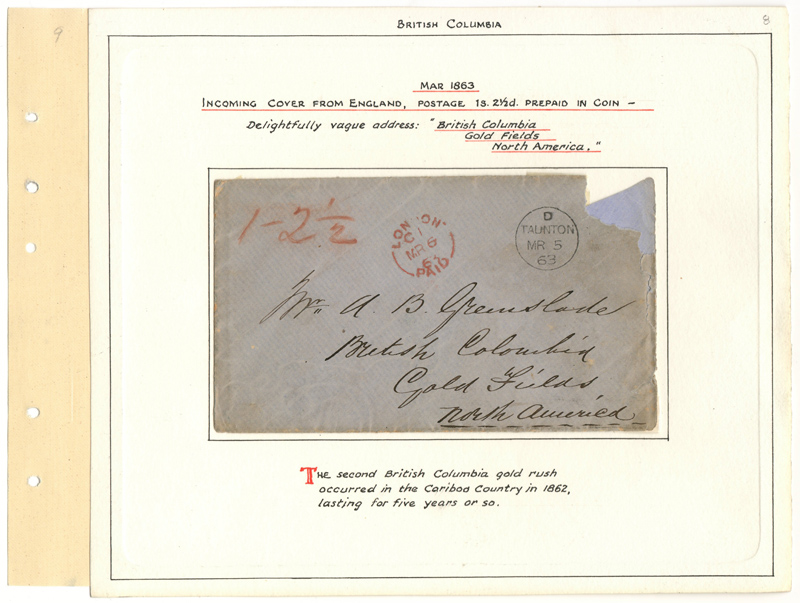 9
British Columbia
8
Mar 1863
Incoming Cover from England, postage 1s. 2½d. prepaid in Coin –
Delightfully vague address: "British Columbia
Gold Fields
North America."
1-2½
LONDON
C1
MR 6
63
PAID
D
TAUNTON
MR 5
63
Mr. A. B. Greenslade
British Colombia
Gold Fields
North America
The second British Columbia gold rush
occurred in the Cariboo Country in 1862,
lasting for five years or so.